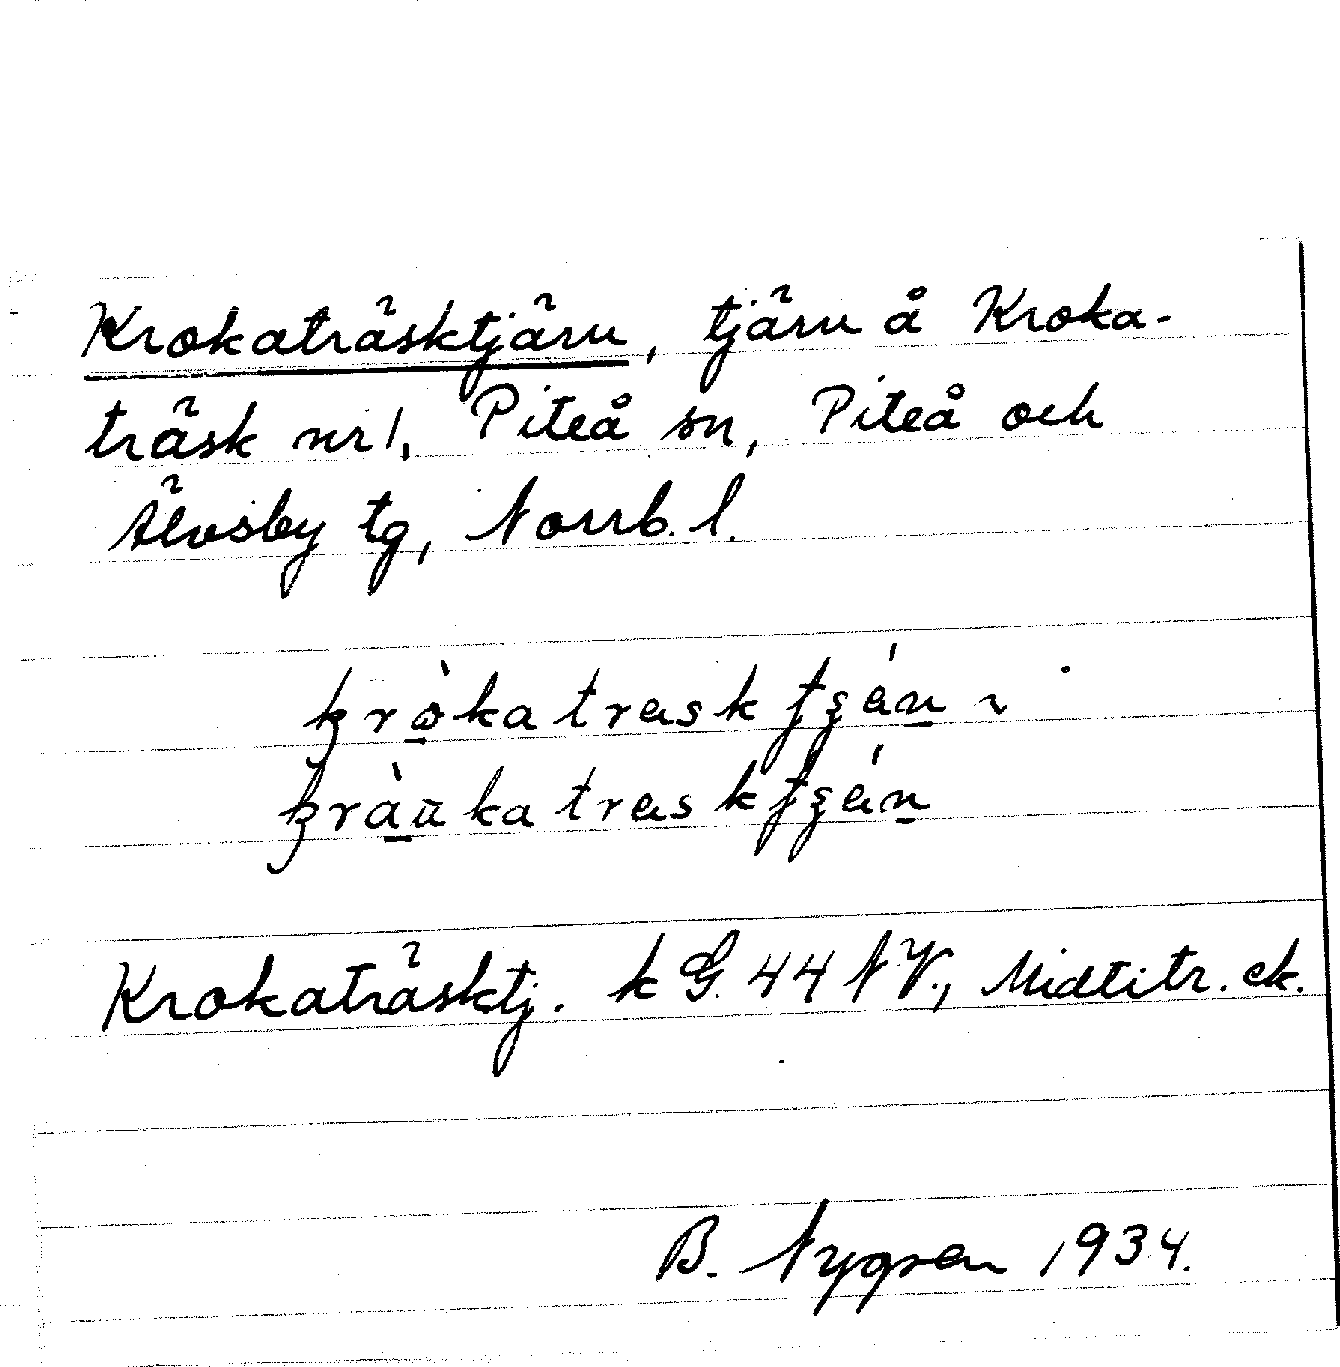 Krokaträsktjärn, tjärn å Kroka-
träsk nr 1, Piteå sn, Piteå och
Älvsby tg, Norrb. l.
kròkatrasktʂán ~
kràukatrasktʂán
Krokaträsktj. k G. 44 NV., Midtitr. ek.
B. Nygren 1934.